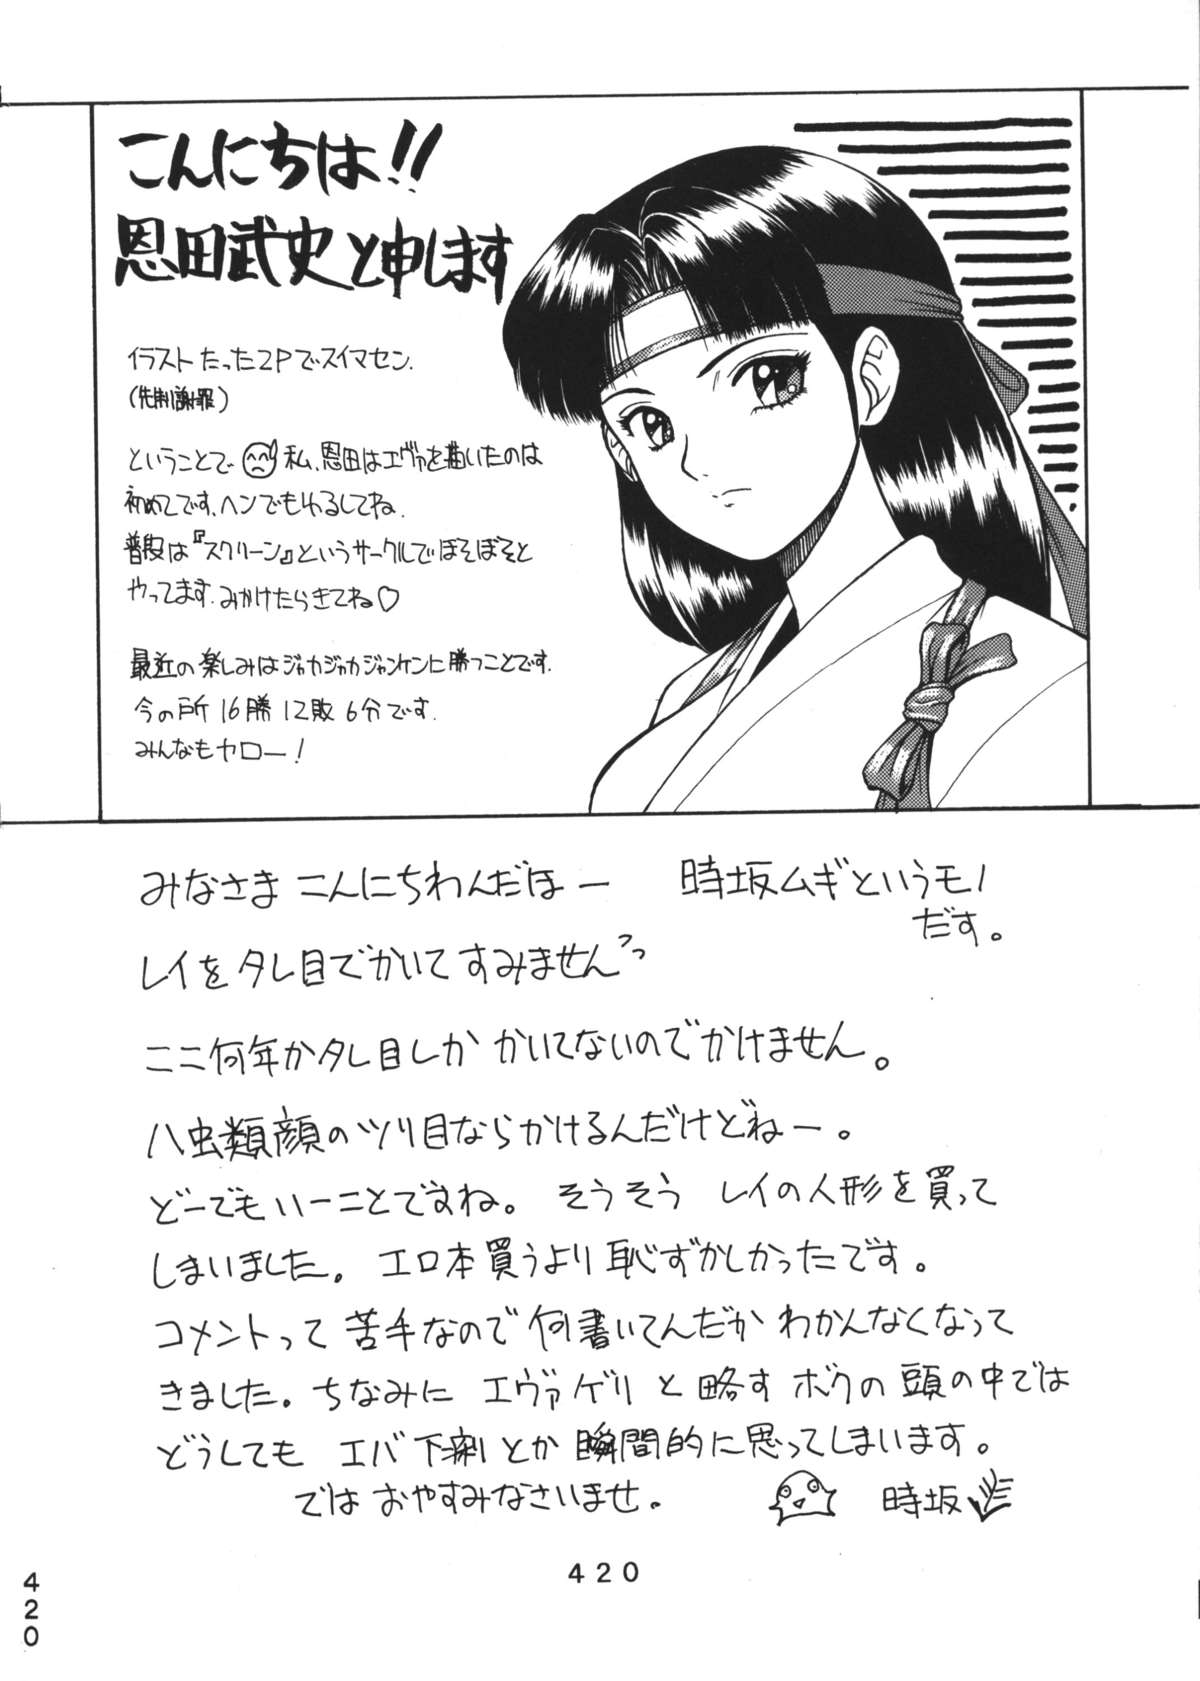 こんにちは!!
恩田武史と申します
イラストたった2Pでスイマセン.
(先制謝罪)
ということで 私、恩田はエヴァを描いたのは
初めてです、ヘンでもゆるしてね.
普段は『スクリーン』というサークルでぼそぼそと
やってます.みかけたらきてね♡
最近の楽しみはジャカジャカジャンケンに勝つことです.
今の所16勝12敗6分です.
みんなもヤロー!
みなさま こんにちわんだほー 時坂ムギというモノ
だす。
レイをタレ目でかいてすみませんっ
ここ何年かタレ目しか かいてないのでかけません。
ハ虫類顔のツリ目ならかけるんだけどねー。
どーでもいーことですね。 そうそう レイの人形を買って
しまいました。エロ本買うより恥ずかしかったです。
コメントって苦手なので何書いてんだか わかんなくなって
きました。ちなみに エヴァゲリ と略す ボクの頭の中では
どうしても エバ下痢とか瞬間的に思ってしまいます。
では おやすみなさいませ。 時坂
420
420